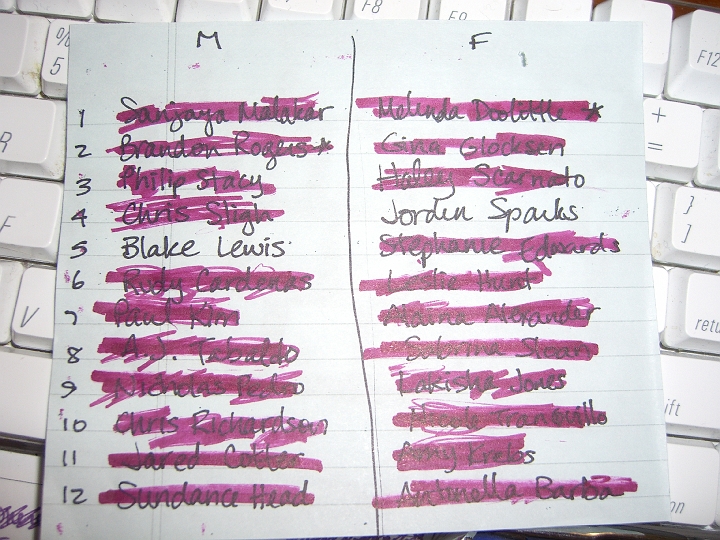 M F
1 Sanjaya Malakar Melinda Doolittle *
2 Brandon Rogers * Gina Glocksen
3 Philip Stacy Haley Scarnato
4 Chris Sligh Jordin Sparks
5 Blake Lewis Stephanie Edwards
6 Rudy Cardenas Leslie Hunt
7 Paul Kim Alaina Alexander
8 A.J. Tabaldo Sabrina Sloan
9 Nicholas Pedro Lakisha Jones
10 Chris Richardson Nicole Tranquillo
11 Jared Cotter Amy Krebs
12 Sundance Head Antonella Barba
% 5
F8
F9
F12
R
+ =
F
} ]
V
retu
ift